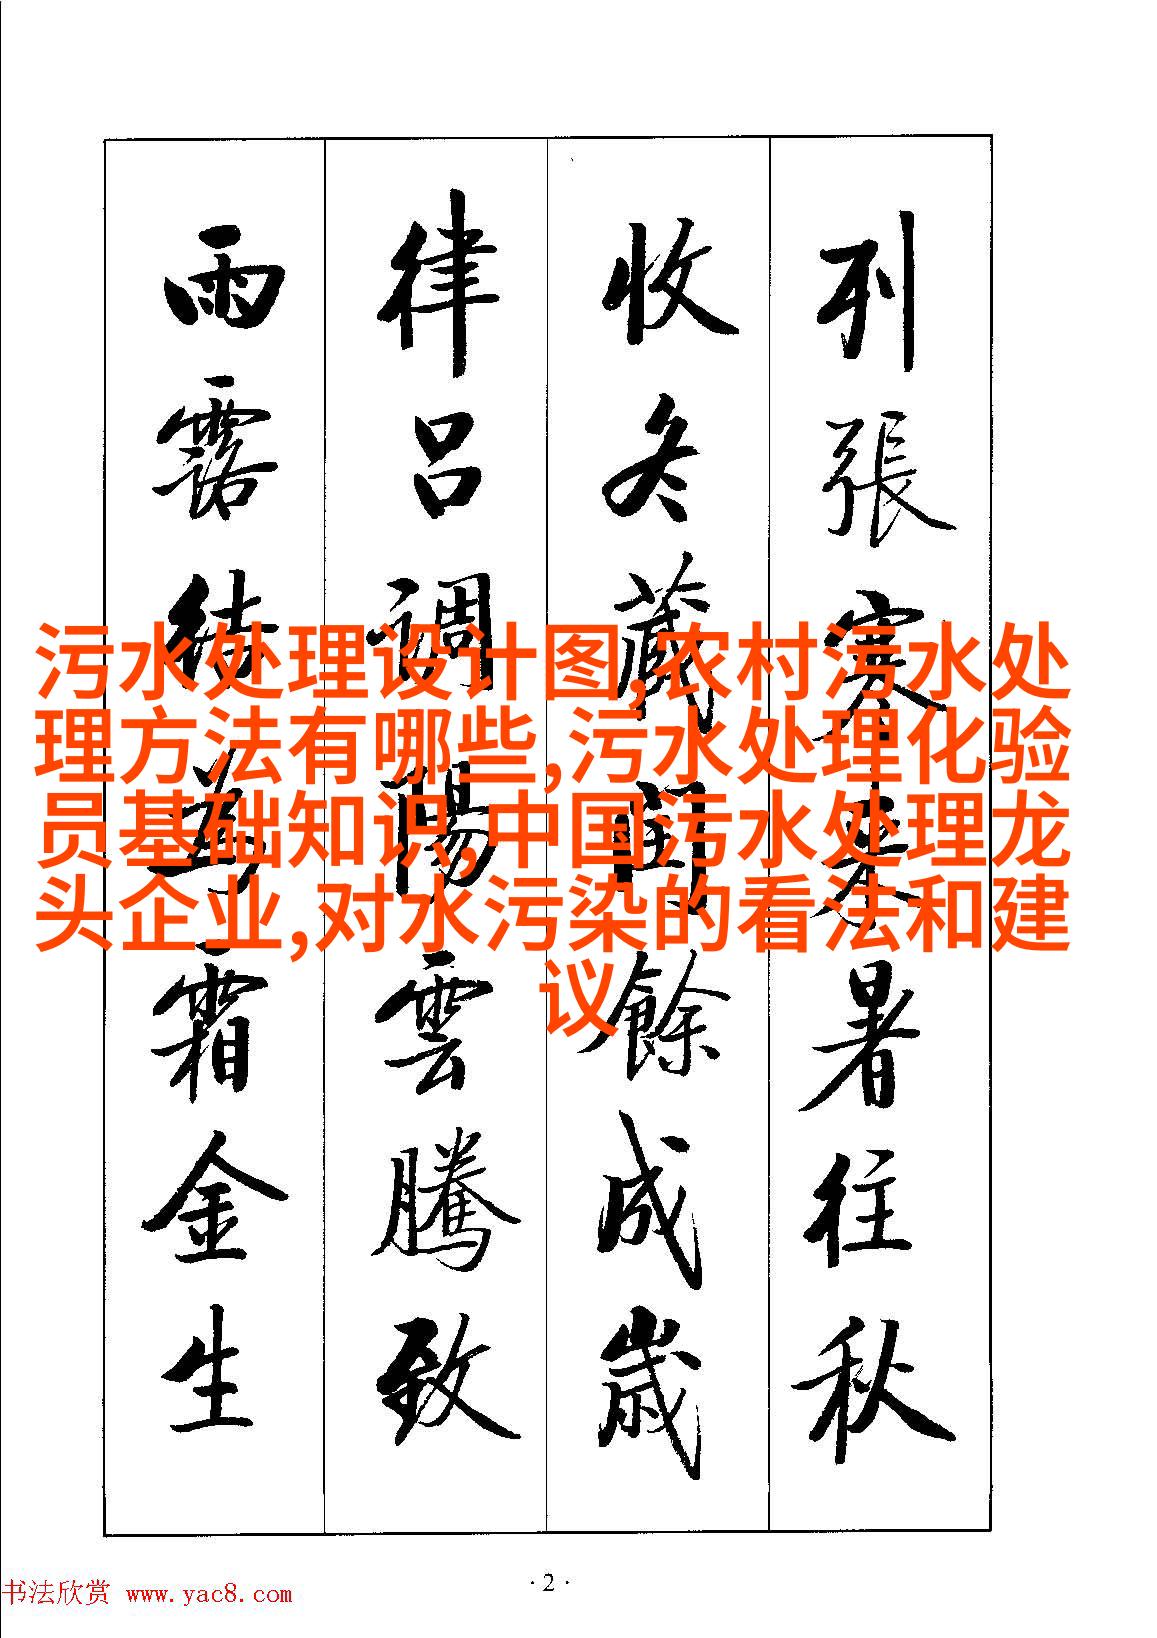 列張寒來暑往秋
收冬藏閏餘成歲
律呂調陽雲騰致
雨露結為霜金生
污水处理设计图,农村污水处
理方法有哪些,污水处理化验
员基础知识,中国污水处理龙
头企业,对水污染的看法和建
议
·2·
书法欣赏 www.yac8.com